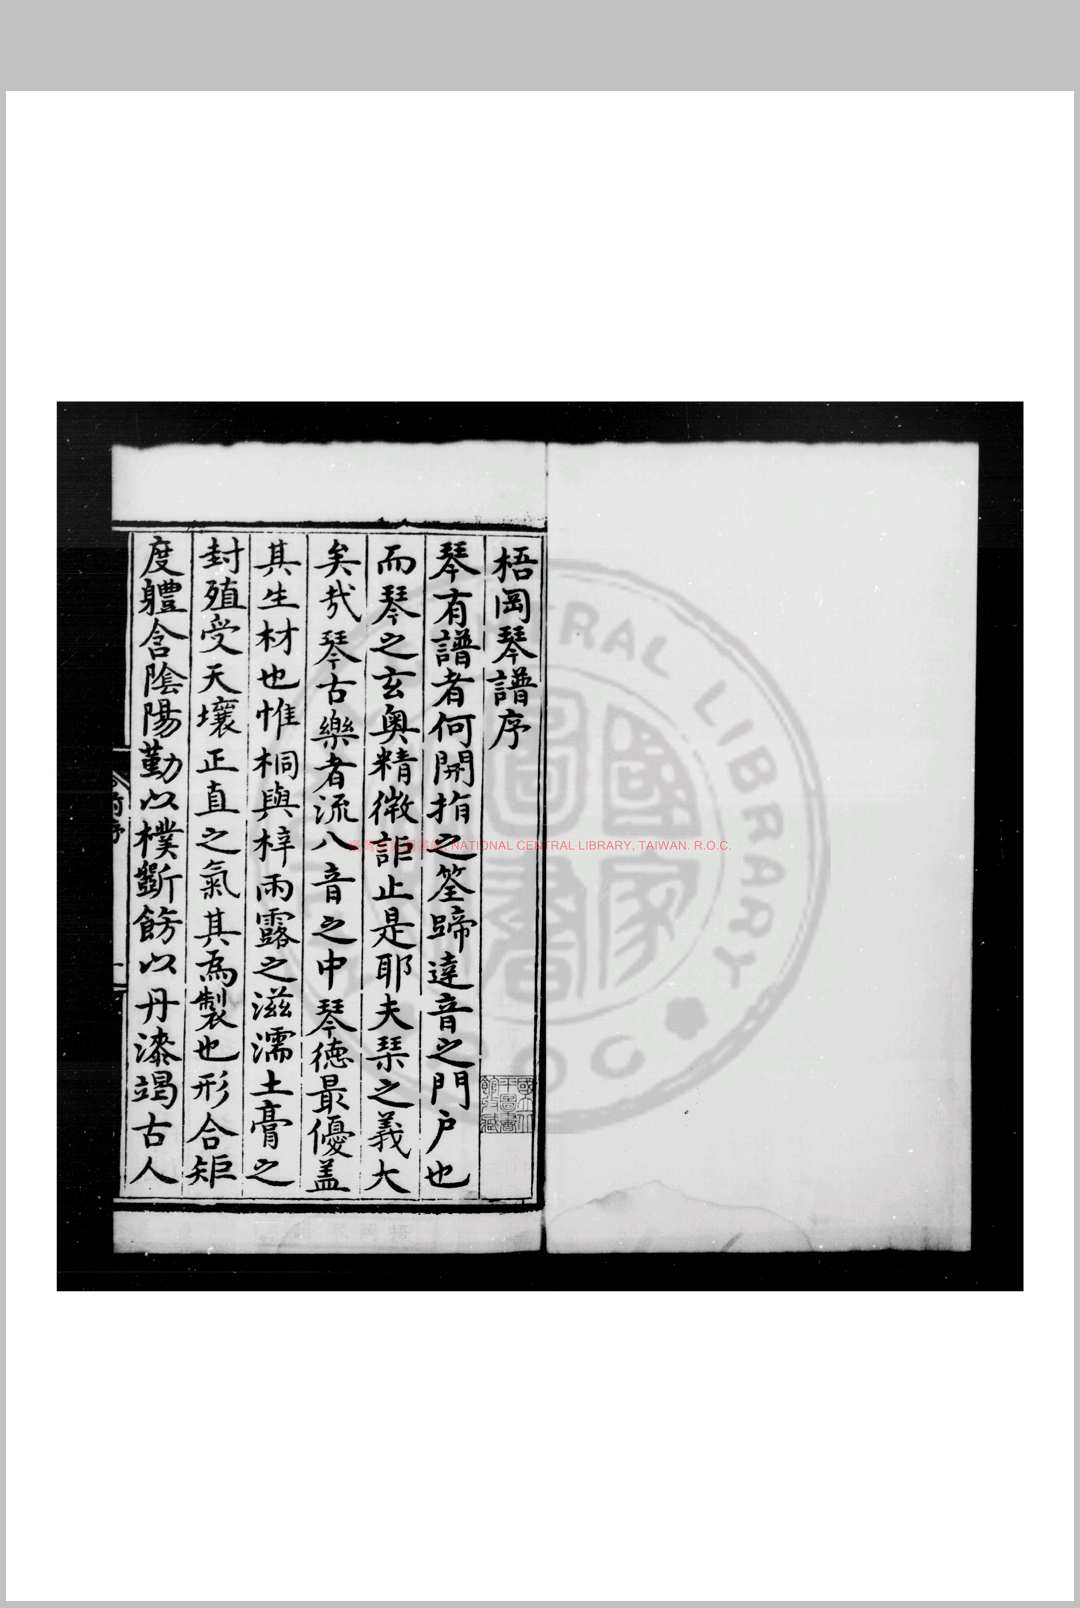 梧岡琴譜序
琴有譜者何開指之筌蹄達音之門户也
而琴之玄奥精微詎止是耶夫琹之義大
矣㢤琴古樂者流八音之中琴德最優盖
其生材也惟桐與梓雨露之滋濡土膏之
封殖受天壤正直之氣其爲製也形合矩
度軆含陰陽勤以樸斲飭以丹漆竭古人
NATIONAL CENTRAL LIBRARY, TAIWAN. R.O.C.
CENTRAL LIBRARY
R.O.C.
國家圖書